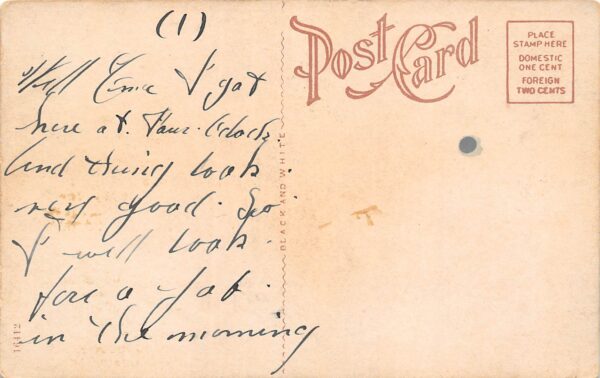 (1)
Well Ema I got
here at Faur. O'clock.
And thing look
very good. So
I will look.
fore a Job.
in the morning
Post Card
PLACE
STAMP HERE
DOMESTIC
ONE CENT
FOREIGN
TWO CENTS
BLACK AND WHITE